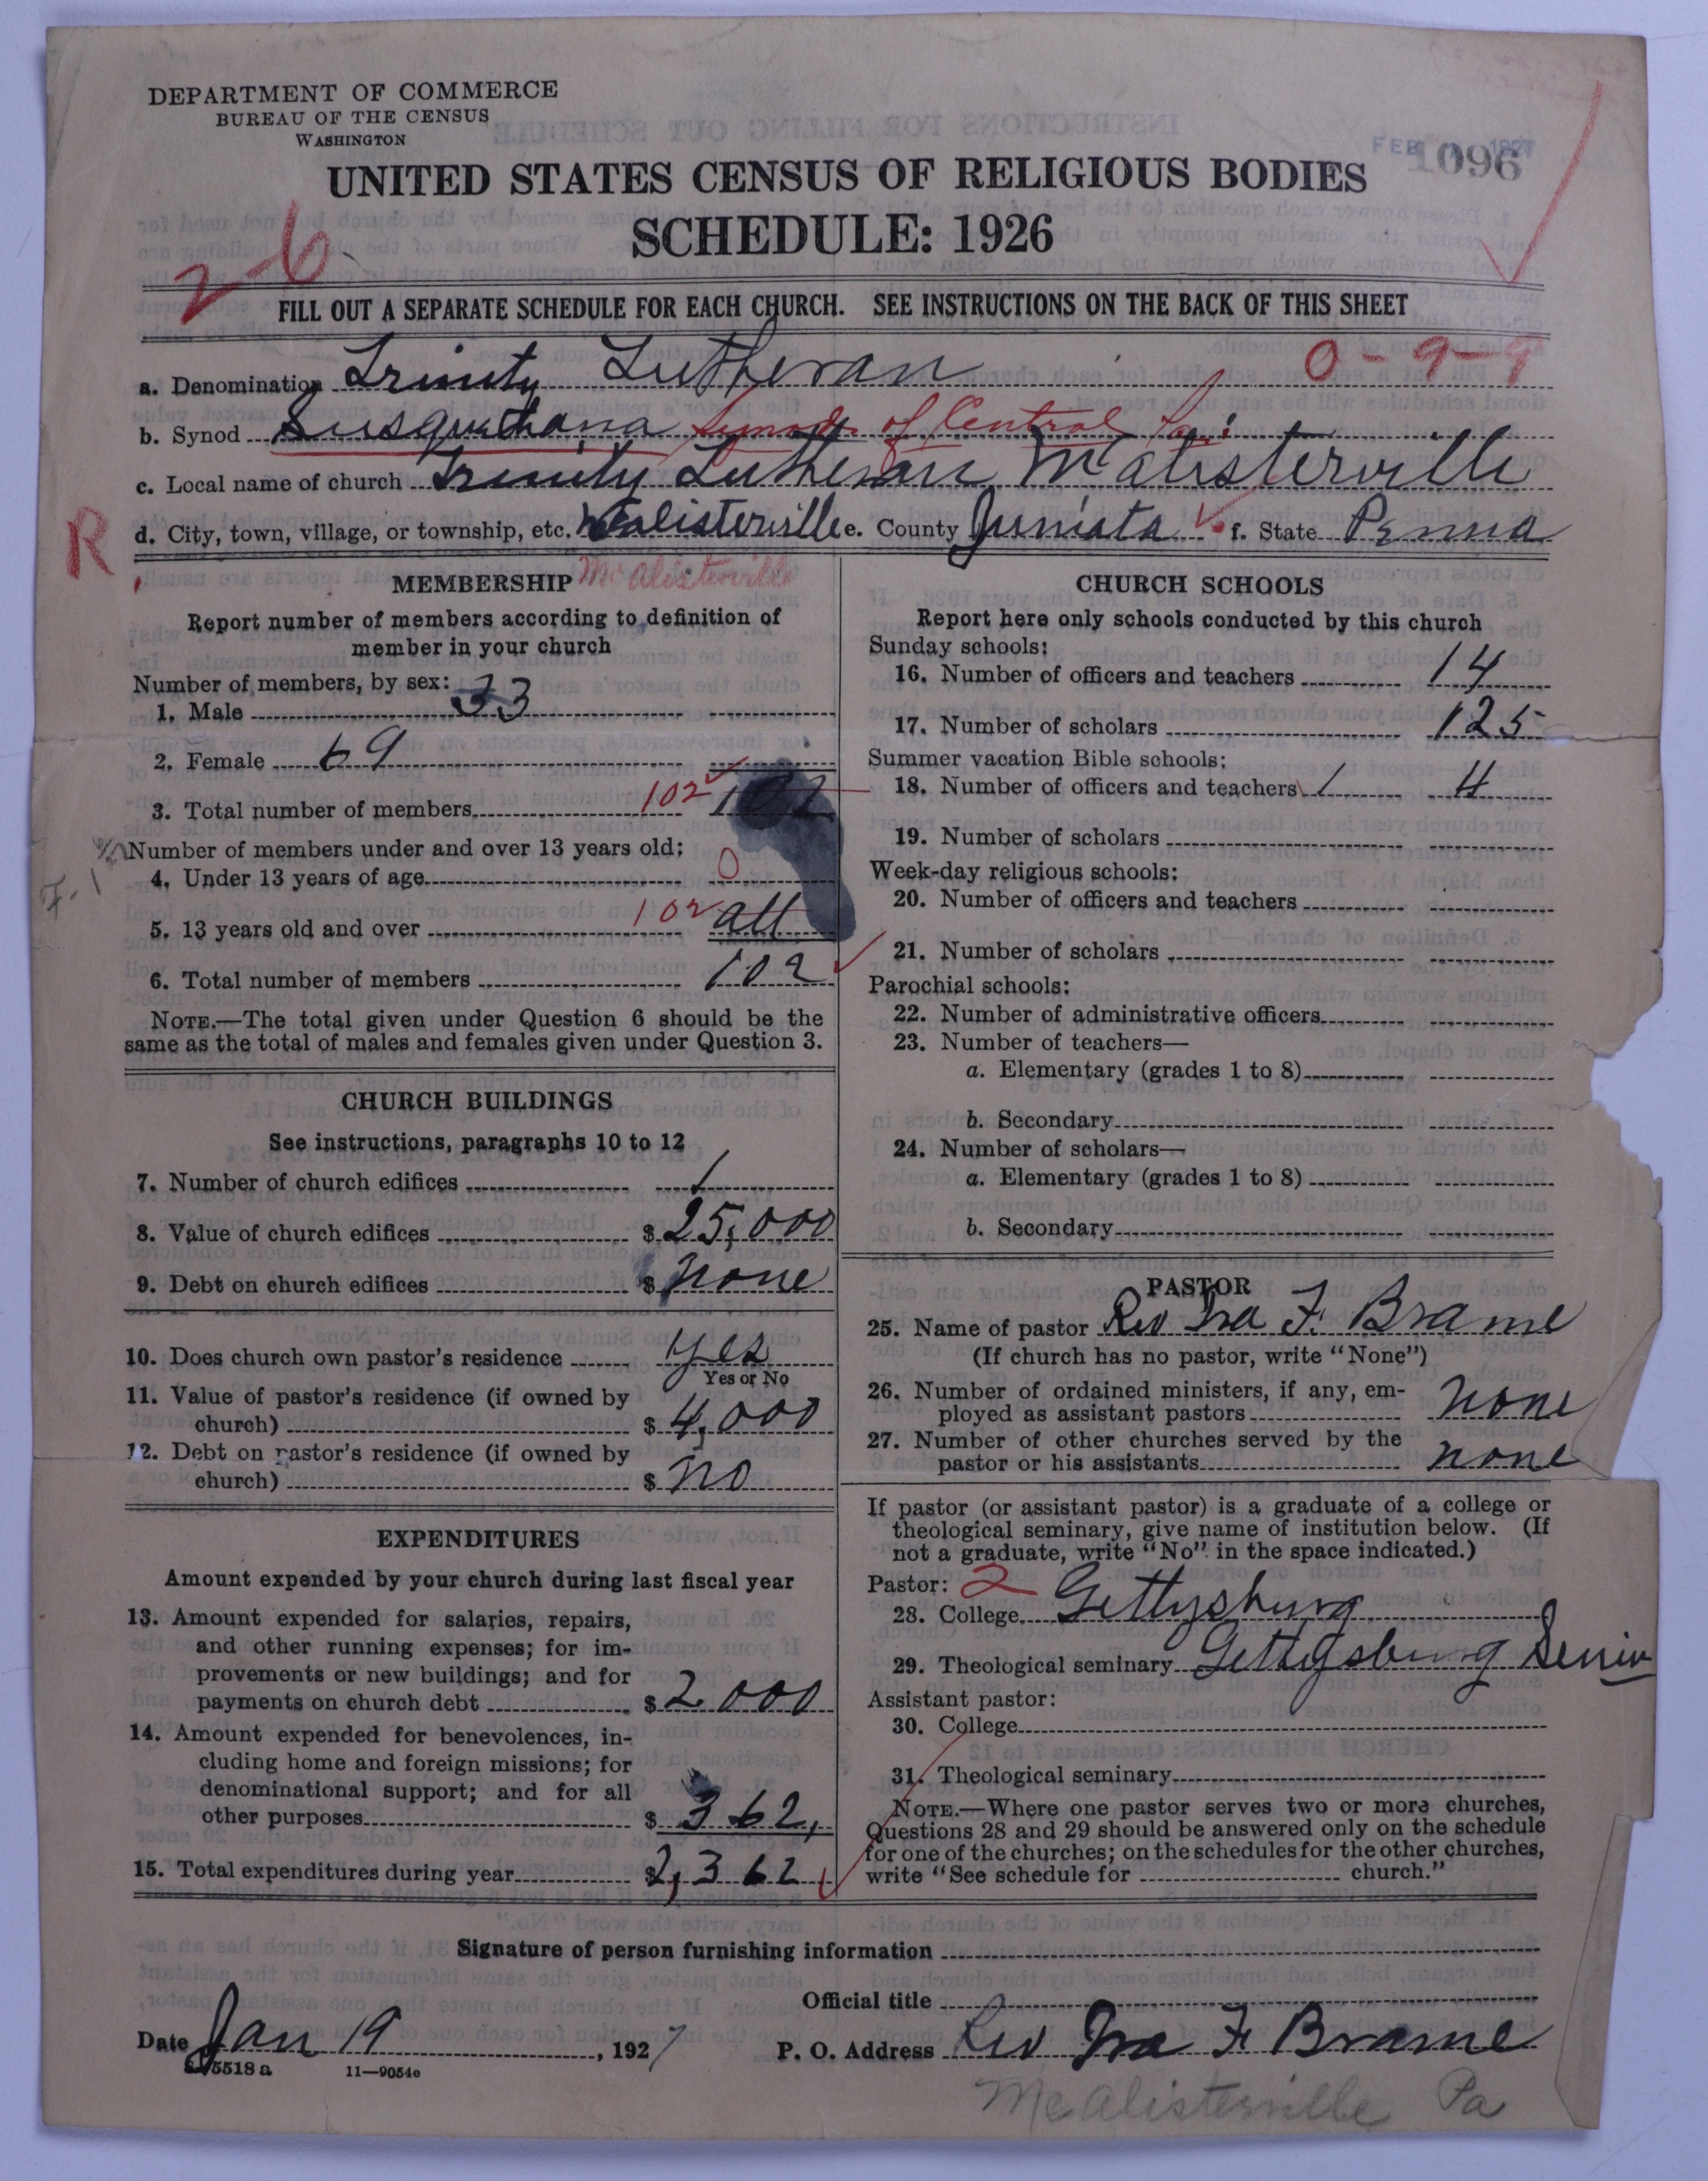 DEPARTMENT OF COMMERCE
BUREAU OF THE CENSUS
WASHINGTON
FEB 1927
1096
UNITED STATES CENSUS OF RELIGIOUS BODIES
SCHEDULE: 1926
2-6
FILL OUT A SEPARATE SCHEDULE FOR EACH CHURCH. SEE INSTRUCTIONS ON THE BACK OF THIS SHEET
0-9-9
a. Denomination Trinity Lutheran
b. Synod Susquehana Synod of Central Pa.
c. Local name of church Trinity Lutheran McAlisterville
R
d. City, town, village, or township, etc. McAlisterville e. County Juniata f. State Penna
MEMBERSHIP McAlisterville
Report number of members according to definition of
member in your church
Number of members, by sex:
1. Male 33
2. Female 69
3. Total number of members 102 102
Number of members under and over 13 years old:
4. Under 13 years of age 0
5. 13 years old and over 102 all
6. Total number of members 102
NOTE.—The total given under Question 6 should be the
same as the total of males and females given under Question 3.
CHURCH BUILDINGS
See instructions, paragraphs 10 to 12
7. Number of church edifices 1
8. Value of church edifices $ 25,000
9. Debt on church edifices $ none
10. Does church own pastor's residence yes
Yes or No
11. Value of pastor's residence (if owned by
church) $ 4,000
12. Debt on pastor's residence (if owned by
church) $ no
EXPENDITURES
Amount expended by your church during last fiscal year
13. Amount expended for salaries, repairs,
and other running expenses; for im-
provements or new buildings; and for
payments on church debt $ 2000
14. Amount expended for benevolences, in-
cluding home and foreign missions; for
denominational support; and for all
other purposes $ 362,
15. Total expenditures during year $ 2,362
CHURCH SCHOOLS
Report here only schools conducted by this church
Sunday schools:
16. Number of officers and teachers 14
17. Number of scholars 125
Summer vacation Bible schools:
18. Number of officers and teachers 1 4
19. Number of scholars
Week-day religious schools:
20. Number of officers and teachers
21. Number of scholars
Parochial schools:
22. Number of administrative officers
23. Number of teachers—
a. Elementary (grades 1 to 8)
b. Secondary
24. Number of scholars—
a. Elementary (grades 1 to 8)
b. Secondary
PASTOR
25. Name of pastor Rev Ira F. Brame
(If church has no pastor, write "None")
26. Number of ordained ministers, if any, em-
ployed as assistant pastors none
27. Number of other churches served by the
pastor or his assistants none
If pastor (or assistant pastor) is a graduate of a college or
theological seminary, give name of institution below. (If
not a graduate, write "No" in the space indicated.)
Pastor: 2
28. College Gettysburg
29. Theological seminary Gettysburg
Assistant pastor:
30. College
31. Theological seminary
NOTE.—Where one pastor serves two or more churches,
Questions 28 and 29 should be answered only on the schedule
for one of the churches; on the schedules for the other churches,
write "See schedule for church."
Signature of person furnishing information
Official title
Date Jan 19, 1927
P. O. Address Rev Ira F. Brame
5518 a 11—9054c
McAlisterville Pa